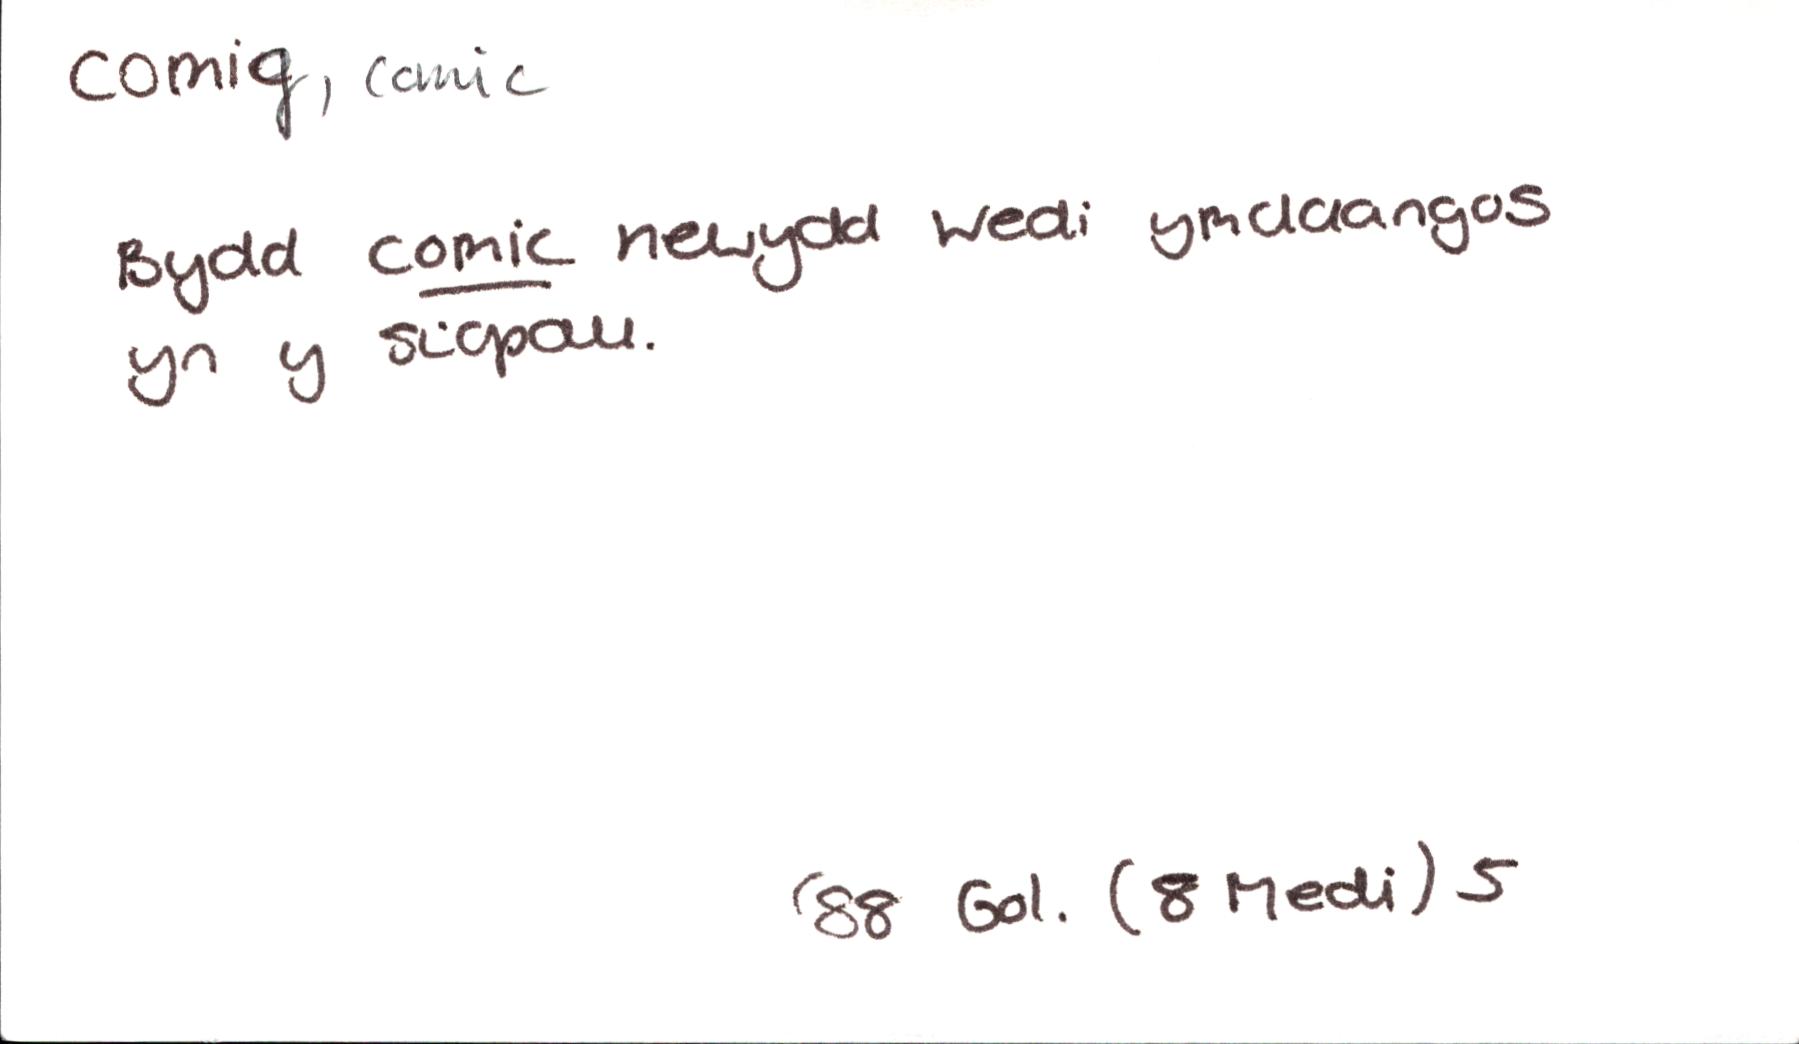 comig, comic
Bydd comic newydd wedi ymddangos
yn y siopau.
'88 Gol. (8 Medi) 5